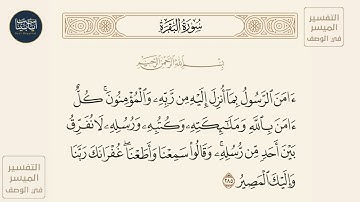 سُورَةُ البَقَرَةِ
التفسير
الميسر
في الوصف
بِسْمِ اللَّهِ الرَّحْمَٰنِ الرَّحِيمِ
ءَامَنَ الرَّسُولُ بِمَا أُنزِلَ إِلَيْهِ مِن رَّبِّهِ وَالْمُؤْمِنُونَ ۚ كُلٌّ
ءَامَنَ بِاللَّهِ وَمَلَٰٓئِكَتِهِ وَكُتُبِهِ وَرُسُلِهِ لَا نُفَرِّقُ
بَيْنَ أَحَدٍ مِّن رُّسُلِهِ ۚ وَقَالُوا سَمِعْنَا وَأَطَعْنَا ۖ غُفْرَانَكَ رَبَّنَا
وَإِلَيْكَ الْمَصِيرُ ٢٨٥
التفسير
الميسر
في الوصف